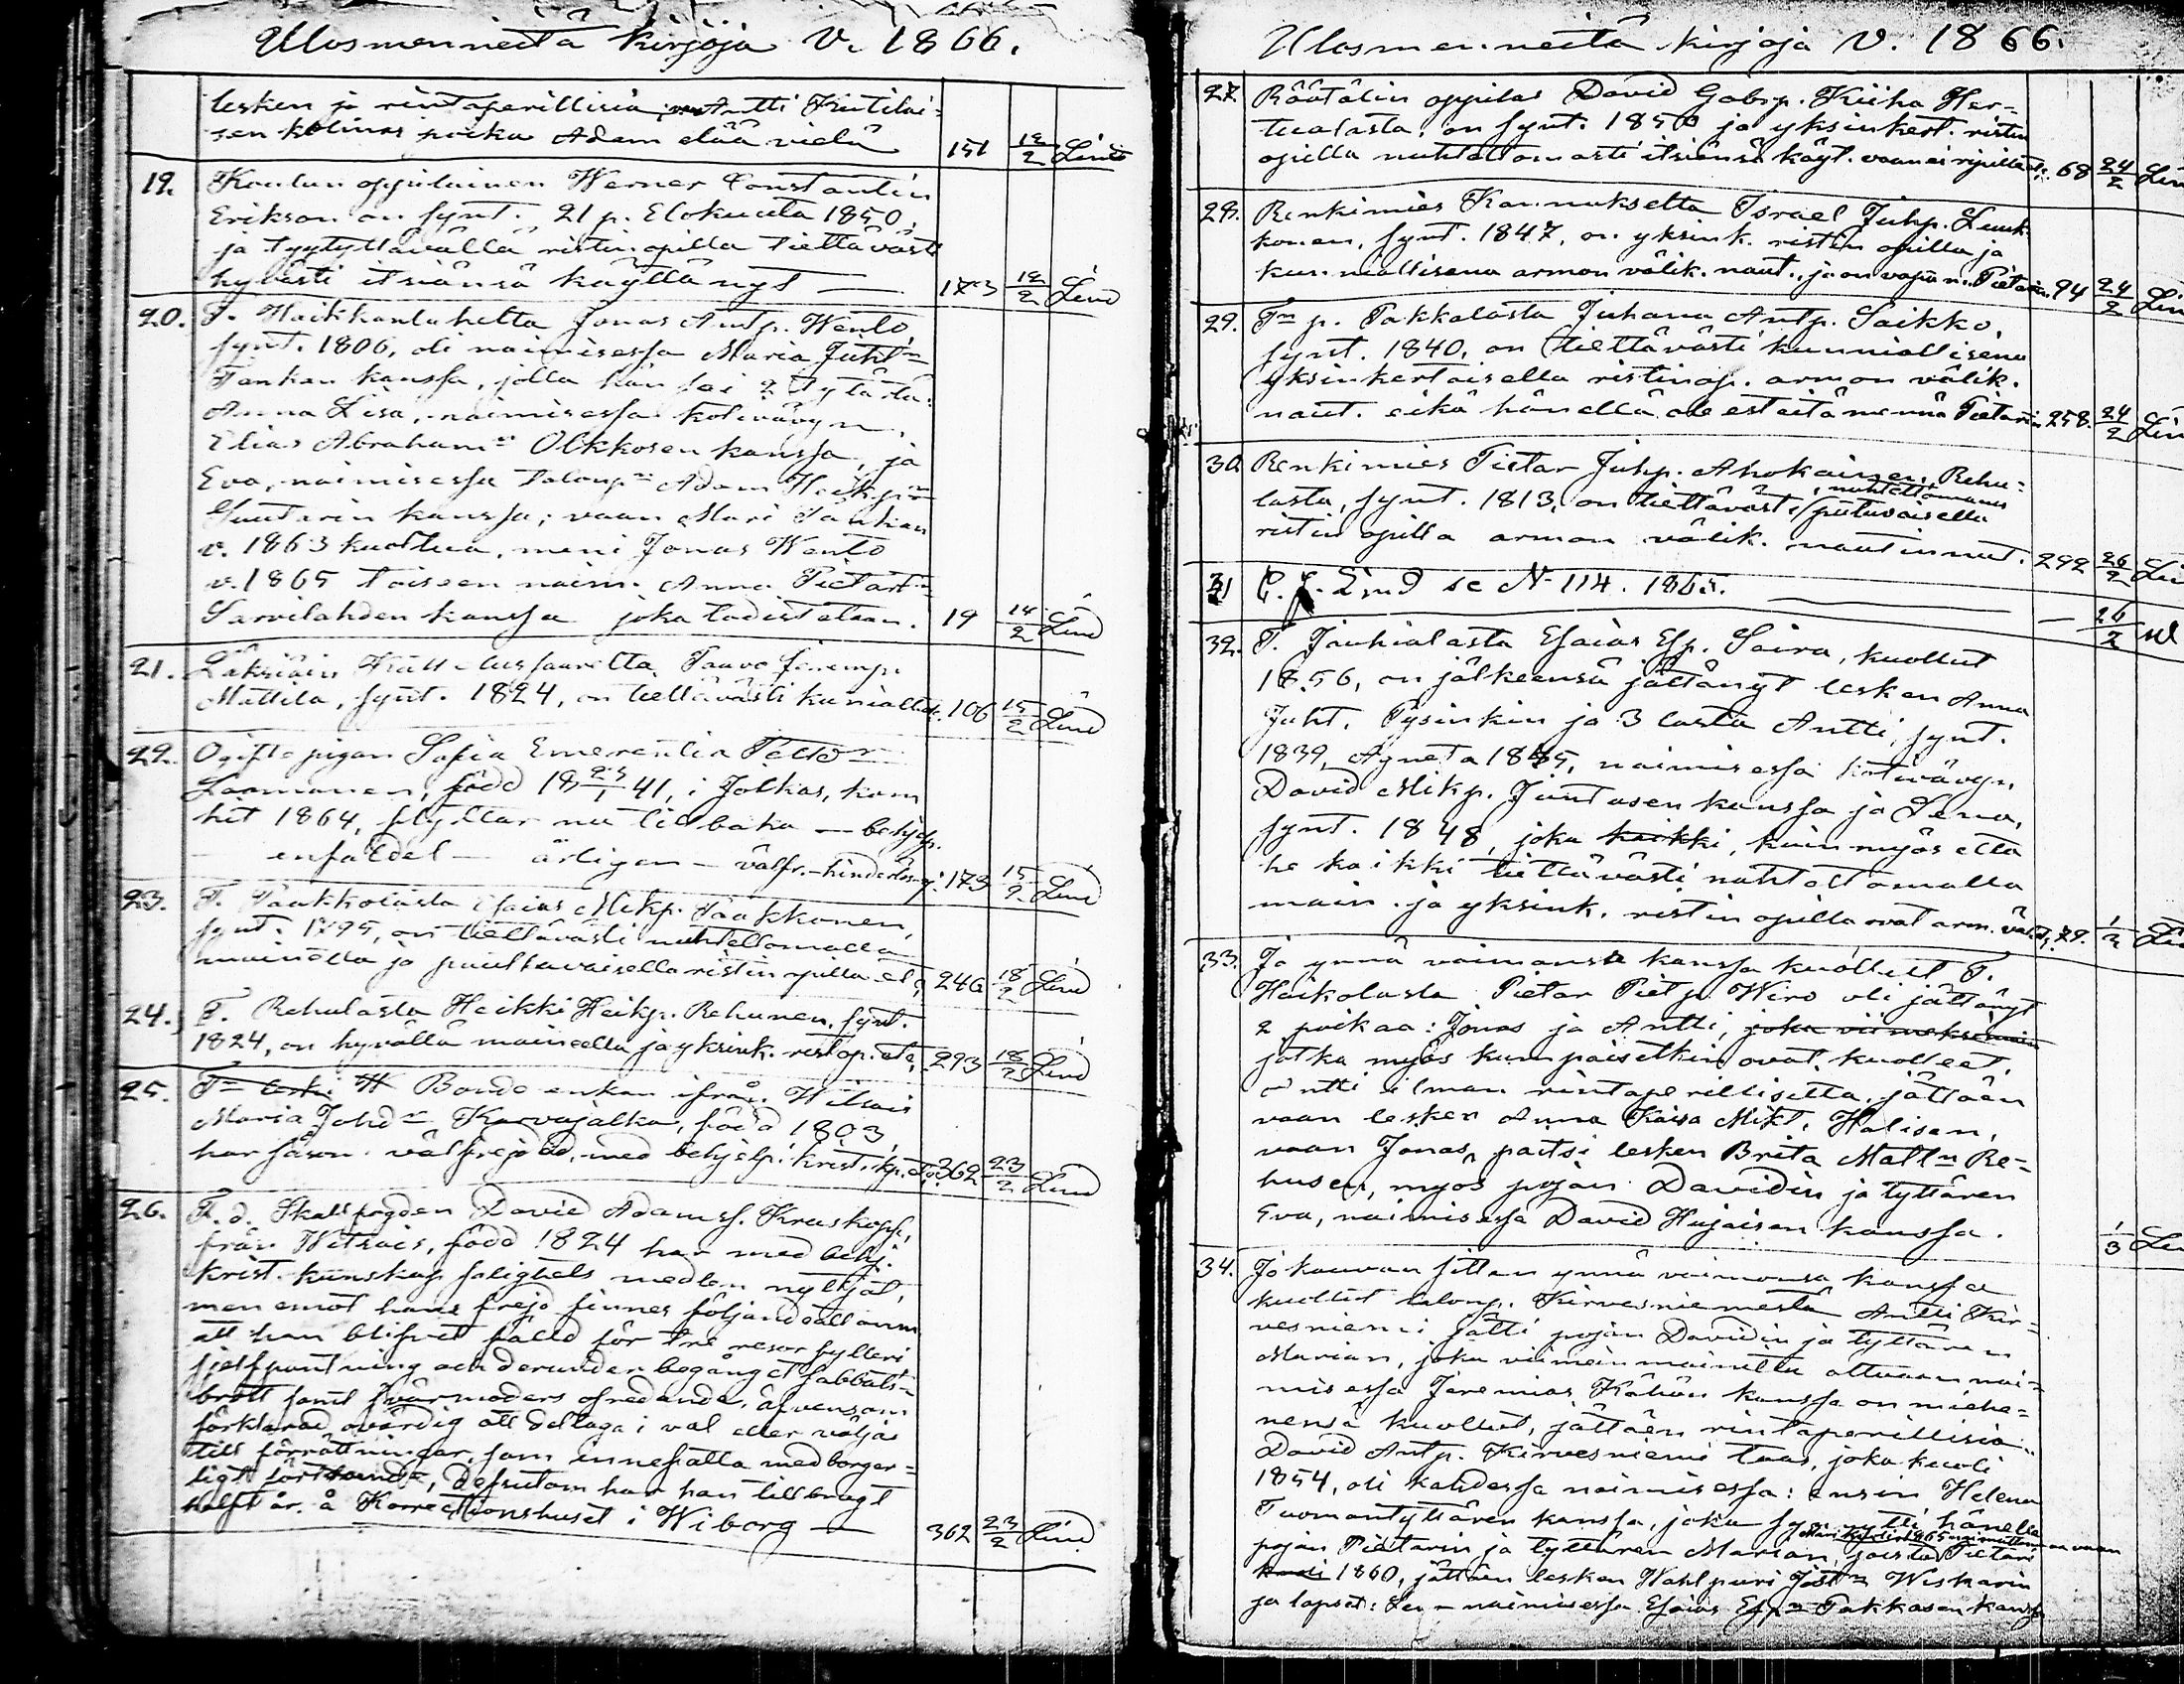 Ulosmenneitä kirjoja V. 1866.
lesken ja rintaperillisiä, Antti Kintilai-
sen kolmas poika Adam elää vielä 151 12/2 Lind
19. Koulun oppilainen Werner Constantin
Erikson on synt. 21 p. Elokuuta 1850,
ja tyytyttävällä ristinopilla tiettävästi
hyvästi itsiänsä käyttänyt — 173 12/2 Lind
20. T. Haikkanlahelta Jonas Antp. Wento,
synt. 1806, oli naimisessa Maria Juht:n
Tankan kanssa, jolla hän sai 2 tytärtä:
Anna Lisa, naimisessa kotivävyn,
Elias Abraham:n Olkkosen kanssa, ja
Eva, naimisessa talonp:n Adam Heikp:n
Suutarin kanssa; vaan Mari Tankan
v. 1863 kuoltua, meni Jonas Wento
v. 1865 toiseen naim. Anna Pietart:n
Sarvilahden kanssa joka todistetaan. 19 14/2 Lind
21. Läksiäin Paavo Jeremp.
Mattila, synt. 1824, on tiettävästi kuniall. etc. 106 15/2 Lind
22. Ogifte pigan Sofia Emerentia
Laamanen, född 18 23/1 41, i Jolkas, kom
hit 1864, flyttar nu tilbaka — behjelp.
enfaldel — ärligen — välfr. — hinderlös. 173 15/2 Lind
23. T. Paakkolasta Esaias Mikp. Paakkonen,
synt. 1795, on tiettävästi nuhtettomalla
maineella ja puuttuvaisella ristinopilla etc. 246 18/2 Lind
24. T. Rehulasta Heikki Heikp. Rehunen, synt.
1824, on hyvällä maineella ja yksink. rist.op. etc. 293 18/2 Lind
25. T:n leski Bonde enkan ifrån Witsais
Maria Johd:r Karvajalka, född 1803,
har såsom välfrejdad, med behjelp. krist. kp. etc. 362 23/2 Lind
26. F. d. Skallfogden David Adamss. Kruskopf,
från Witsais, född 1824 har med behj.
krist. kunskap salighets medlen nyttjat,
men emot hans frejd finnes följande att anm.
att han blifvit fälld för tre resor fylleri
sjelfpantning och derunder begånget sabbats-
brott samt svärmoders ofredande, äfvensom
förklarad ovärdig att deltaga i val eller väljas
till förrättningar, som innefatta medborger-
ligt förtroende, Dessutom har han tillbragt
halft år å Korrectionshuset i Wiborg — 362 23/2 Lind
Ulosmenneitä kirjoja V. 1866.
27. Räätälin oppilas David Gabrp. Kiiha Her-
tualasta, on synt. 1850 ja yksinkert. ristin
opilla nuhtettomasti itsiänsä käyt. vaan ei ripillä etc. 68 24/2 Lin
28. Renkimies Kannukselta Israel Juhp. Leuk-
konen, synt. 1847, on yksink. ristin opilla ja
kunniallisena armon välik. naut., ja on vapa n. Pietarin. 94 24/2 Lin
29. T:n p. Pakkalasta Juhana Antp. Saikko,
synt. 1840, on tiettävästi kunniallisena
yksinkertaisella ristinop. armon välik.
naut. eikä hänellä ole esteitä mennä Pietariin 258. 24/2 Lin
30. Renkimies Pietar Juhp. Ahokainen, Rehu-
lasta, synt. 1813, on tiettävästi nuhtettomana puutuvaisella
ristin opilla armon välik. nautinnut. 292 26/2 Lin
31 C. J. Lind se N. 114. 1865. — 26/2
32. T. Jauhialasta Esaias Esp. Saira, kuollut
1856, on jälkeensä jättänyt lesken Anna
Juht. Pysinkin ja 3 lasta Antti, synt.
1839, Agneta 1845, naimisessa kotivävyn,
David Mikp. Juntusen kanssa ja Lena,
synt. 1848, joka kaikki, kuin myös että
he kaikki tiettävästi nuhtettomalla
main. ja yksink. ristin opilla ovat arm. väl. etc. 79. 1/3 Lin
33. Jo ynnä vaimonsa kanssa kuollut T.
Haikolasta Pietar Pietp. Wiro oli jättänyt
2 poikaa: Jonas ja Antti, joka viimeksi
jotka myös kumpaisetkin ovat kuolleet,
Antti ilman rintaperillisettä, jättäen
vaan lesken Anna Kaisa Mikt. Halisen,
vaan Jonas, paitsi lesken Brita Matt:n Re-
husen, myös pojan Davidin ja tyttären
Eva, naimisessa David Hujaisen kanssa. 1/3 Lin
34. Jo kauvan sitten ynnä vaimonsa kanssa
kuollut talonp. Kirvesniemestä Antti Kir-
vesniemi jätti pojan Davidin ja tyttären
Marian, joka viimein mainittu oltuaan nai-
misessa Jeremias Kähön kanssa on miehe-
nensä kuollut, jättäen rintaperillisiä.
David Antp. Kirvesniemi taas, joka kuoli
1854, oli kahdessa naimisessa: ensin Helena
Tuomantyttären kanssa, joka synnytti hänelle
pojan Pietarin ja tyttären Marian, joista Pietari
kuoli 1860, jättäen lesken Wahlpuri Jost:n Wiskarin
ja lapset: naimisessa Esaias Esp:n Pakkasen kanssa